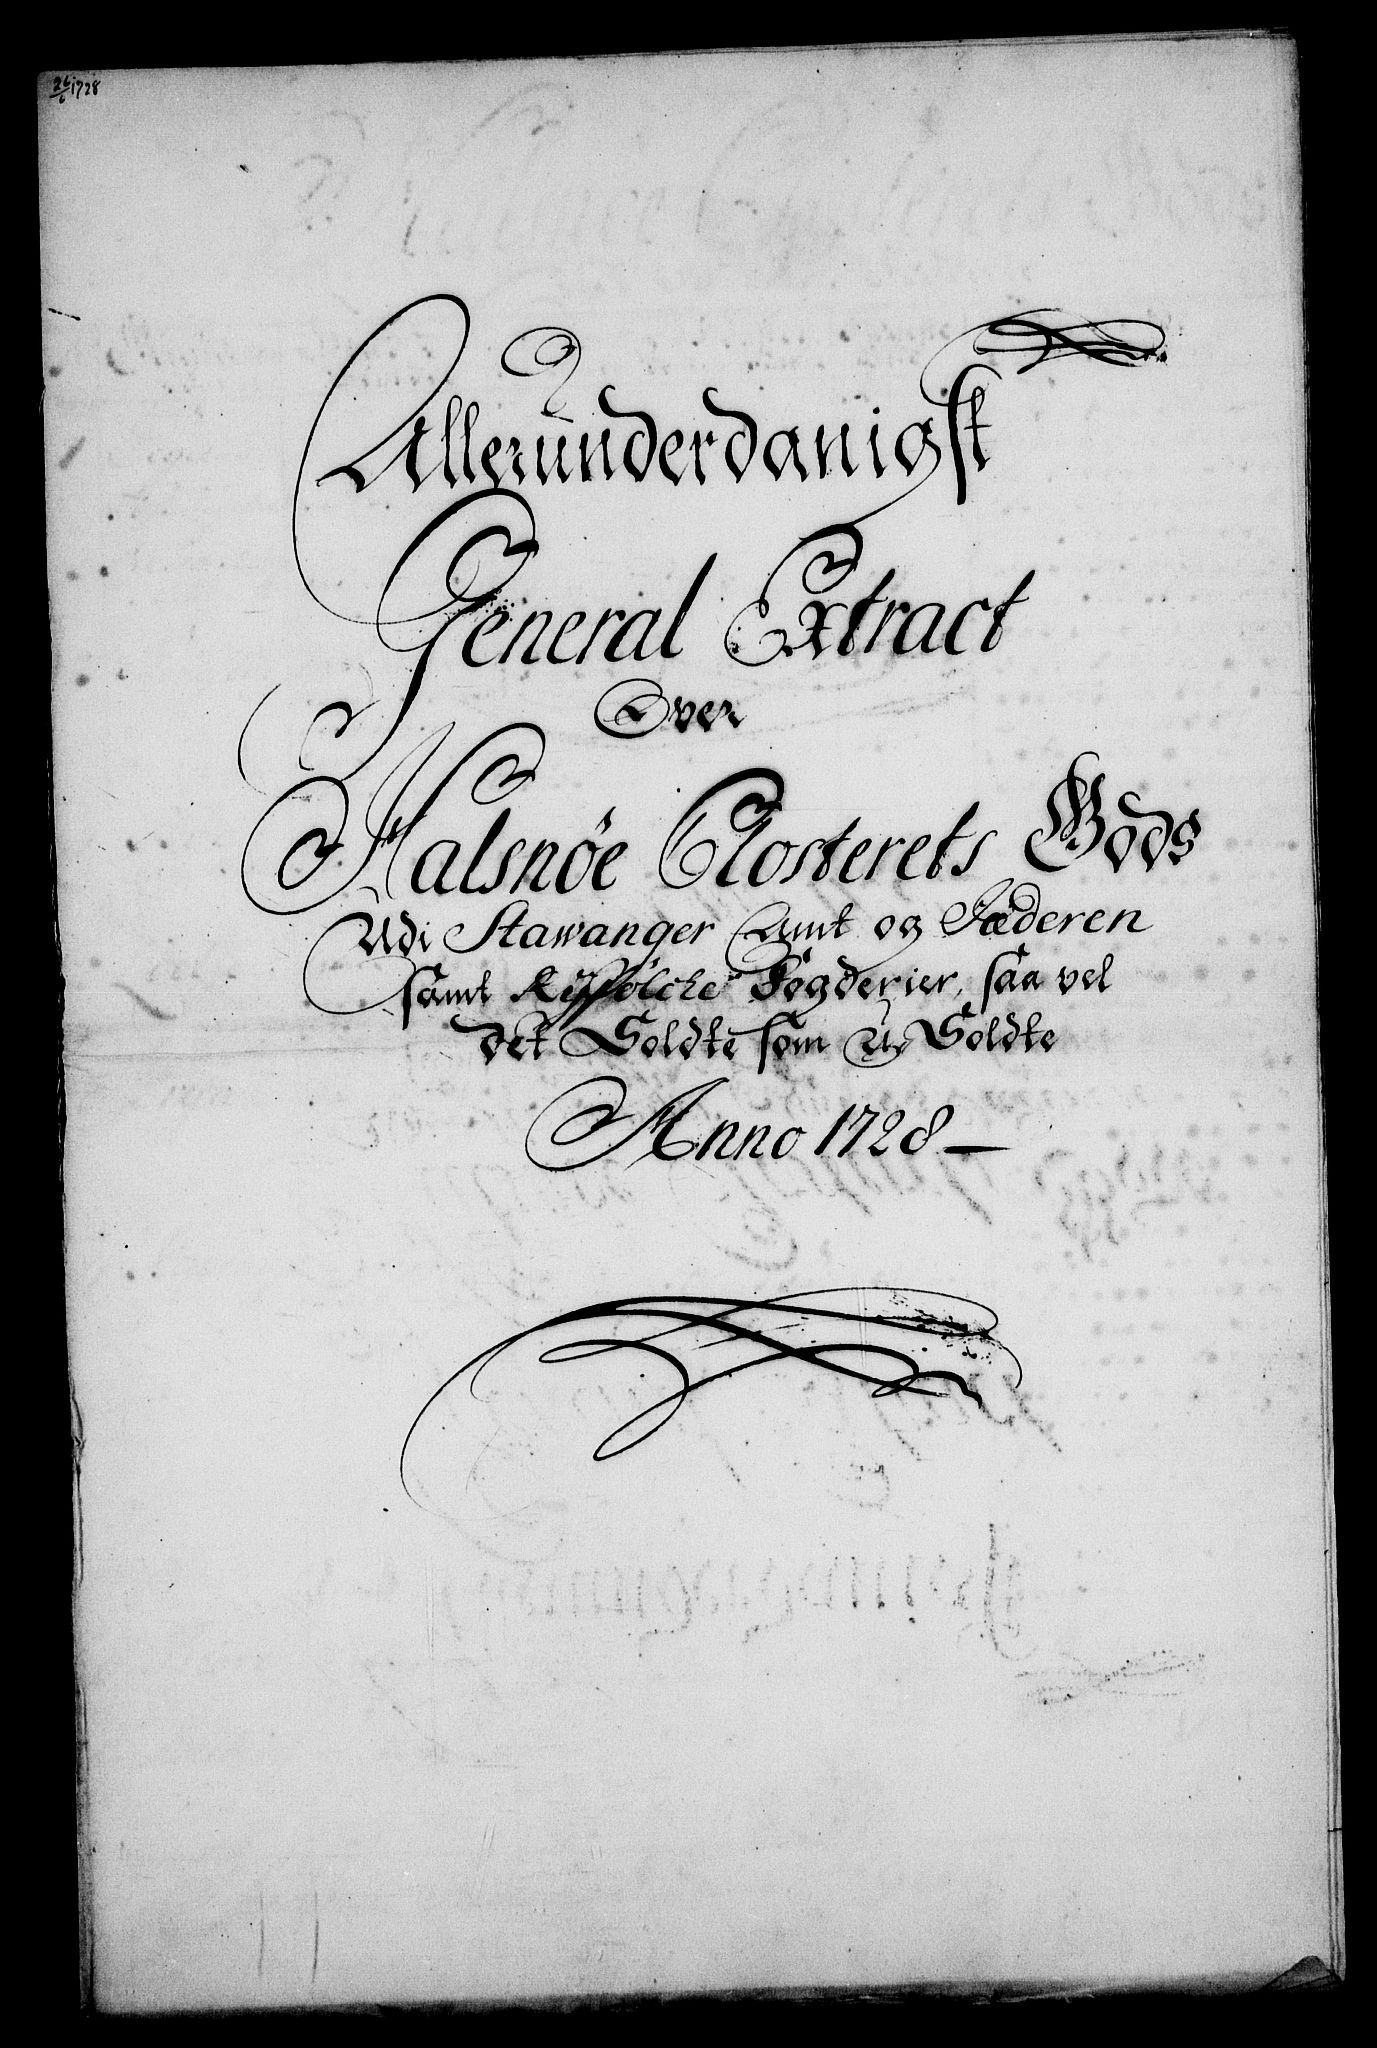 26/6 1728
Allerunderdanigst
General Extract
Over
Halsnöe Closterets Gods
Udi Stawanger Amt og Jæderen
samt Ryfölche Fogderier, saa vel
det Soldte som U Soldte
Anno 1728 —